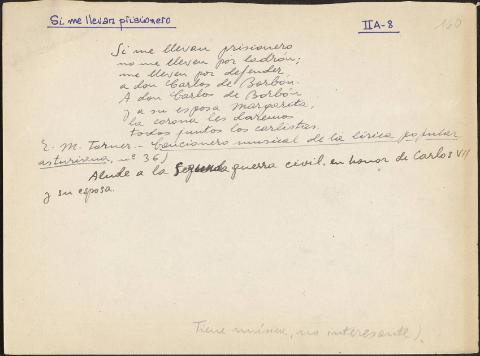 Si me llevan prisionero
IIA-8
160
Si me llevan prisionero
no me lleven por ladrón;
me lleven por defender
a don Carlos de Borbón.
A don Carlos de Borbón
y a su esposa Margarita,
la corona les daremos
todos juntos los carlistas.
E. M. Torner.- Cancionero musical de la lírica popular
asturiana, nº 36)
Alude a la Segunda guerra civil, en honor de Carlos VII
y su esposa.
Tiene música, no interesante).